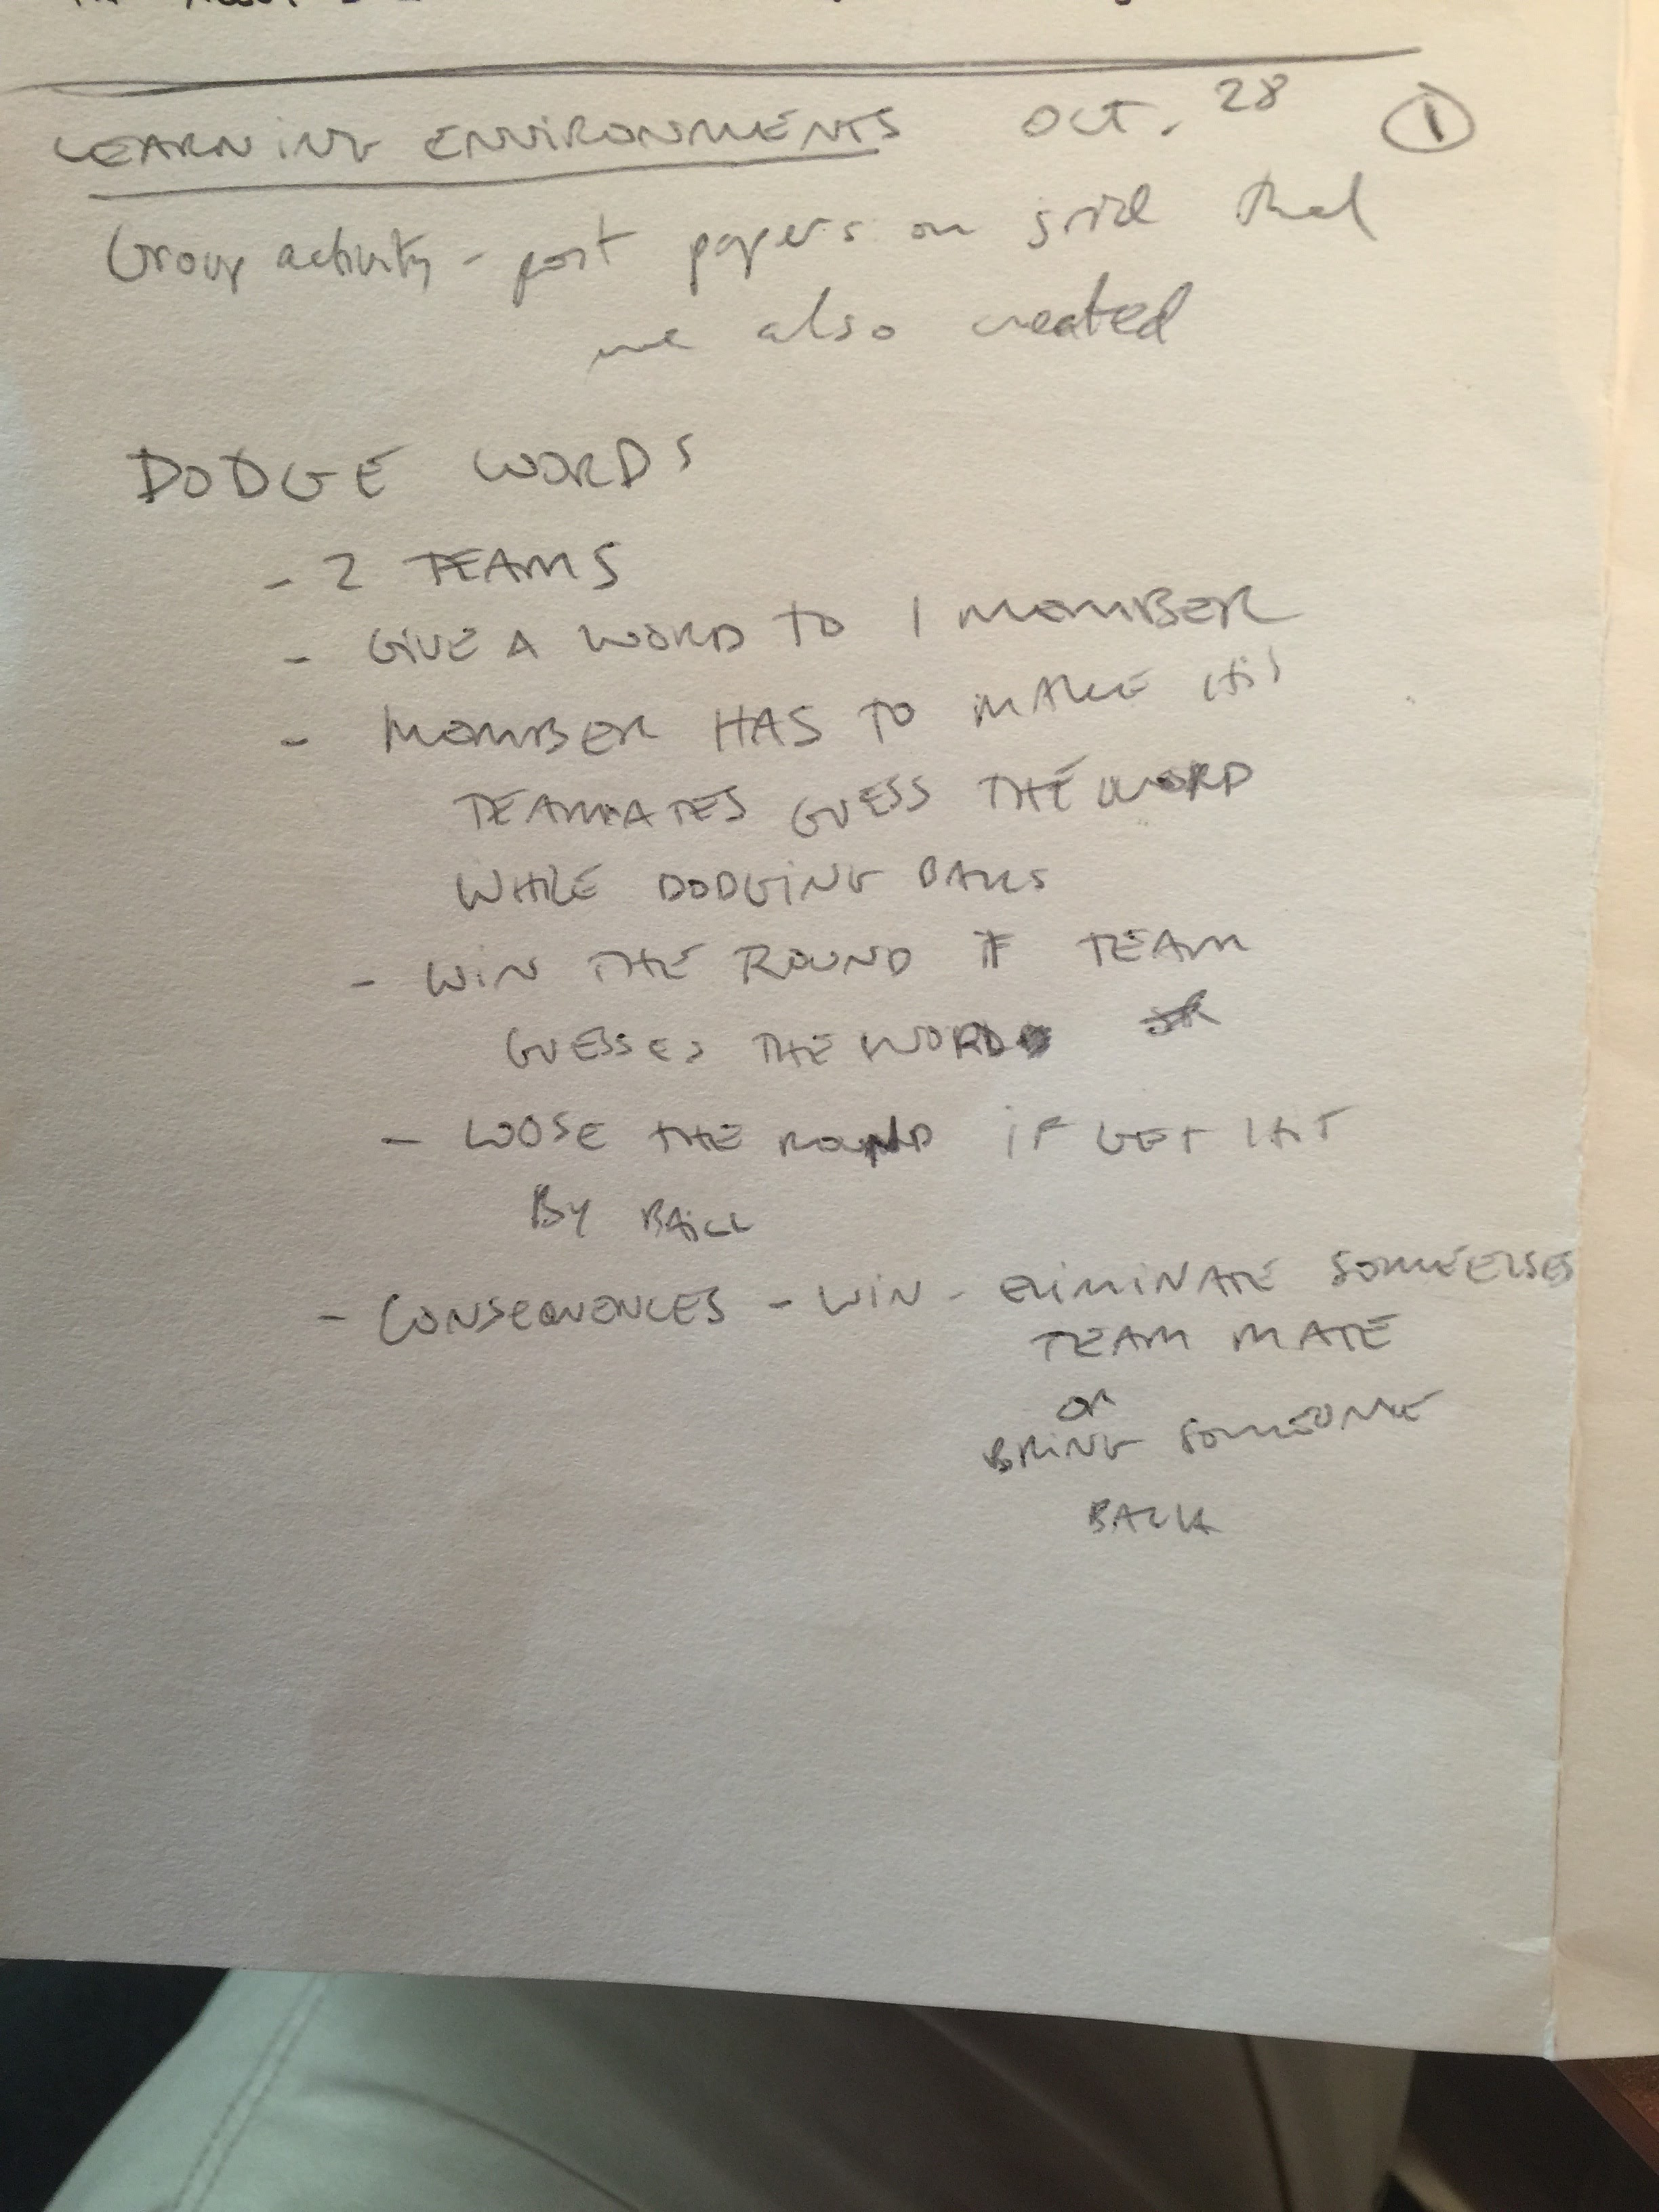 LEARNING ENVIRONMENTS OCT. 28 1
Group activity - post papers on grid that
we also created
DODGE WORDS
- 2 TEAMS
- GIVE A WORD TO 1 MEMBER
- MEMBER HAS TO MAKE HIS
TEAMMATES GUESS THE WORD
WHILE DODGING BALLS
- WIN THE ROUND IF TEAM
GUESSES THE WORD
- LOOSE THE ROUND IF GET HIT
BY BALL
- CONSEQUENCES - WIN - ELIMINATE SOMEELSES
TEAM MATE
OR
BRING SOMEONE
BACK